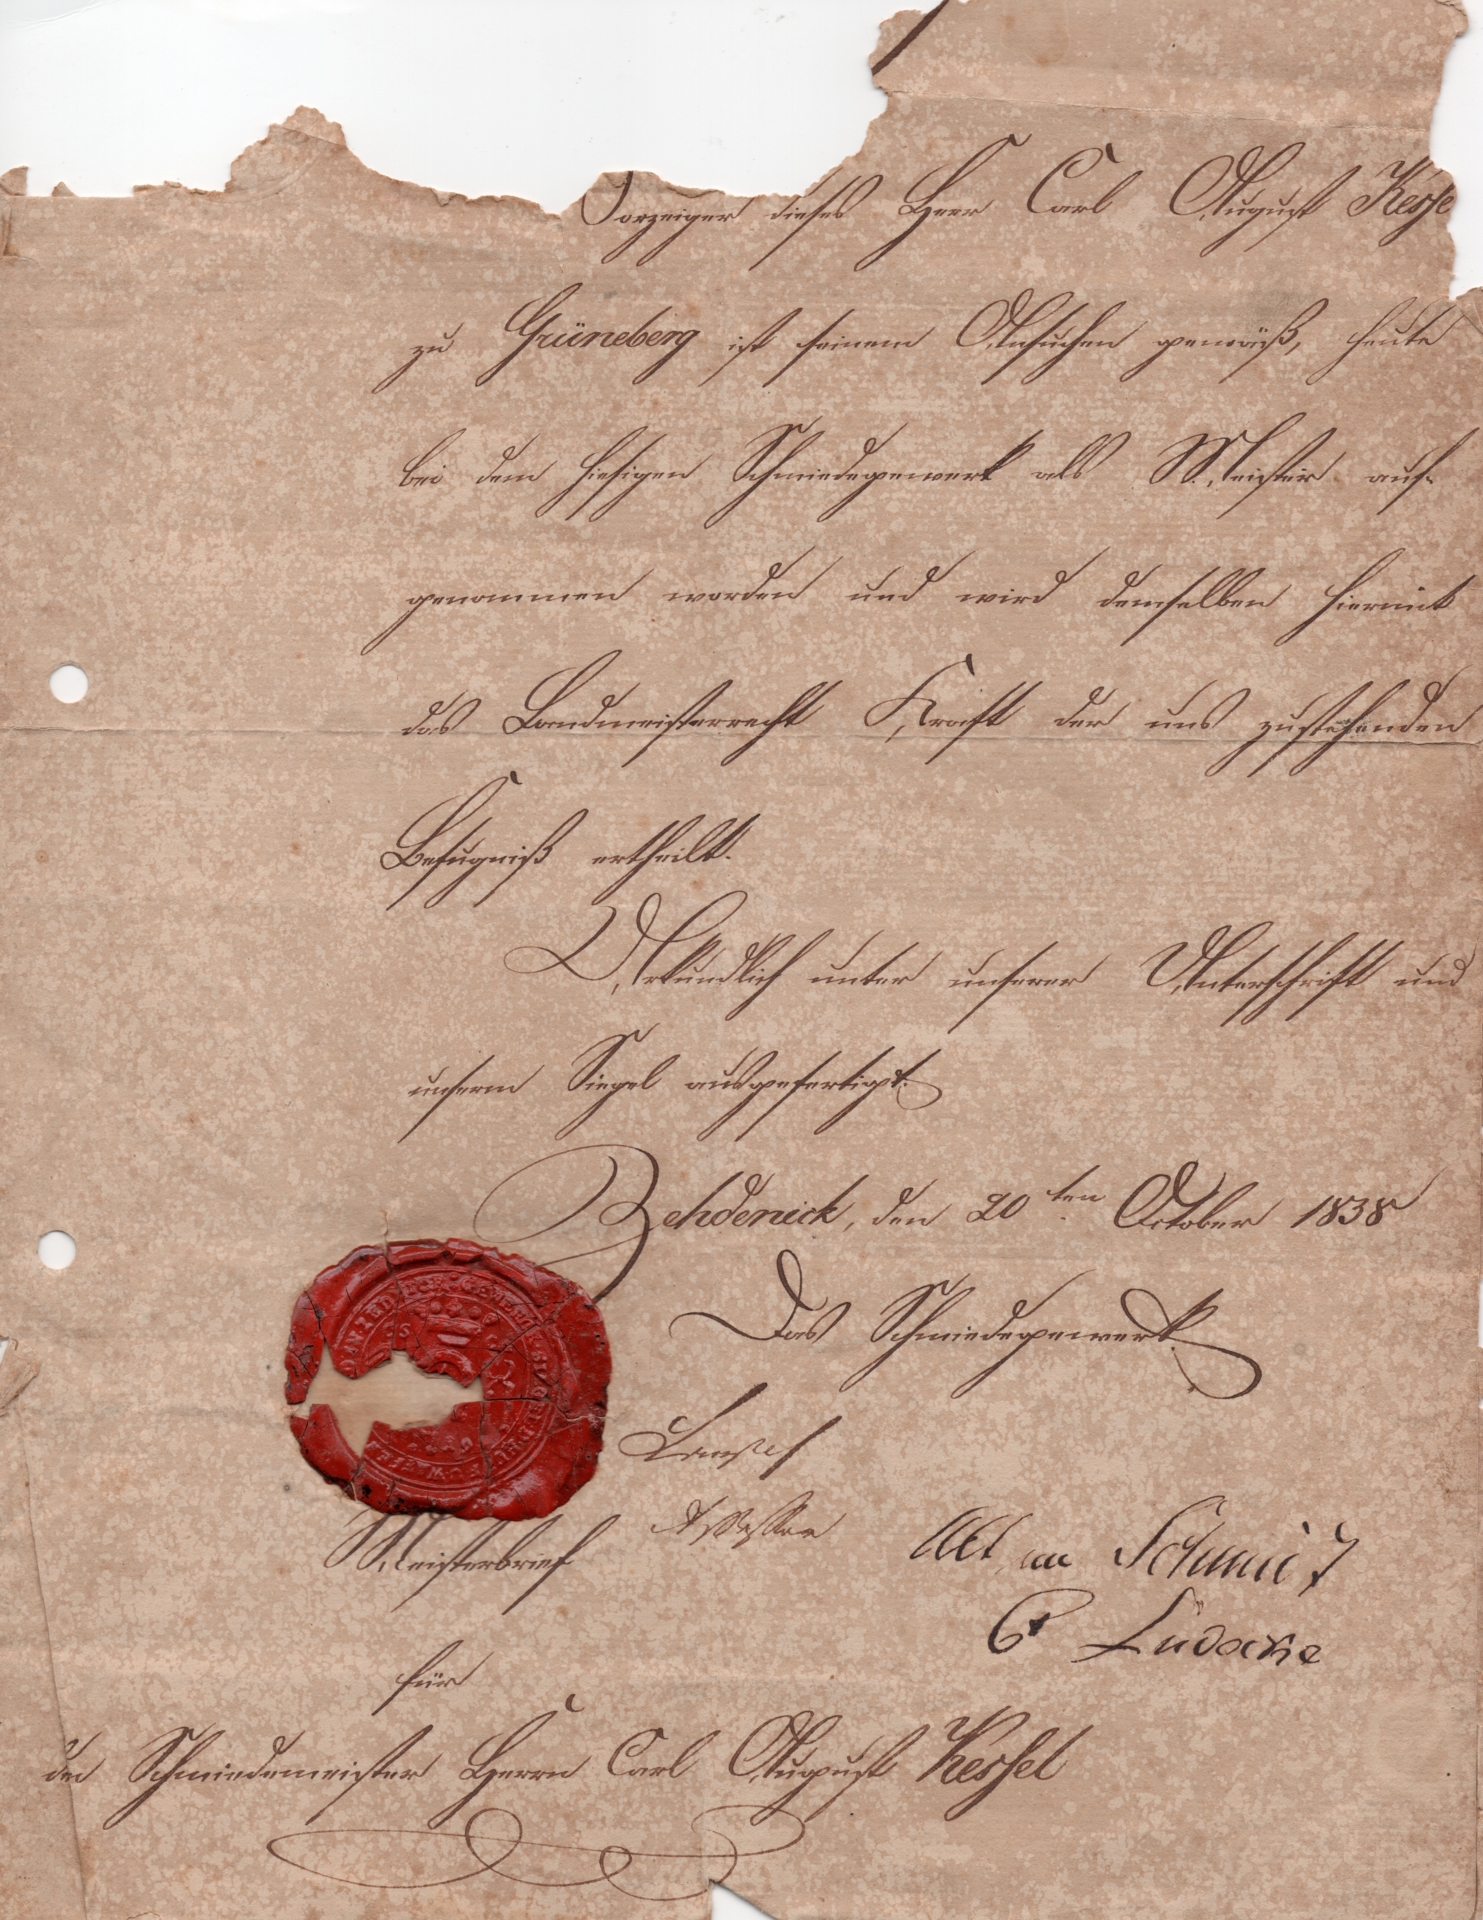 Vorzeiger dieses Herr Carl August Kesse
zu Grüneberg ist seinem Ansuchen gemäß, heute
bei dem hiesigen Schmiedegewerk als Meister auf-
genommen worden und wird demselben hiermit
das Landmeisterrecht Kraft der uns zustehenden
Befugniß ertheilt.
Urkundlich unter unserer Unterschrift und
unserm Siegel ausgefertigt.
Zehdenick, den 20ten October 1838
Das Schmiedegewerk.
Assessor
Schmidt
Lüdecke
Meisterbrief
für
den Schmiedemeister Herrn Carl August Kessel